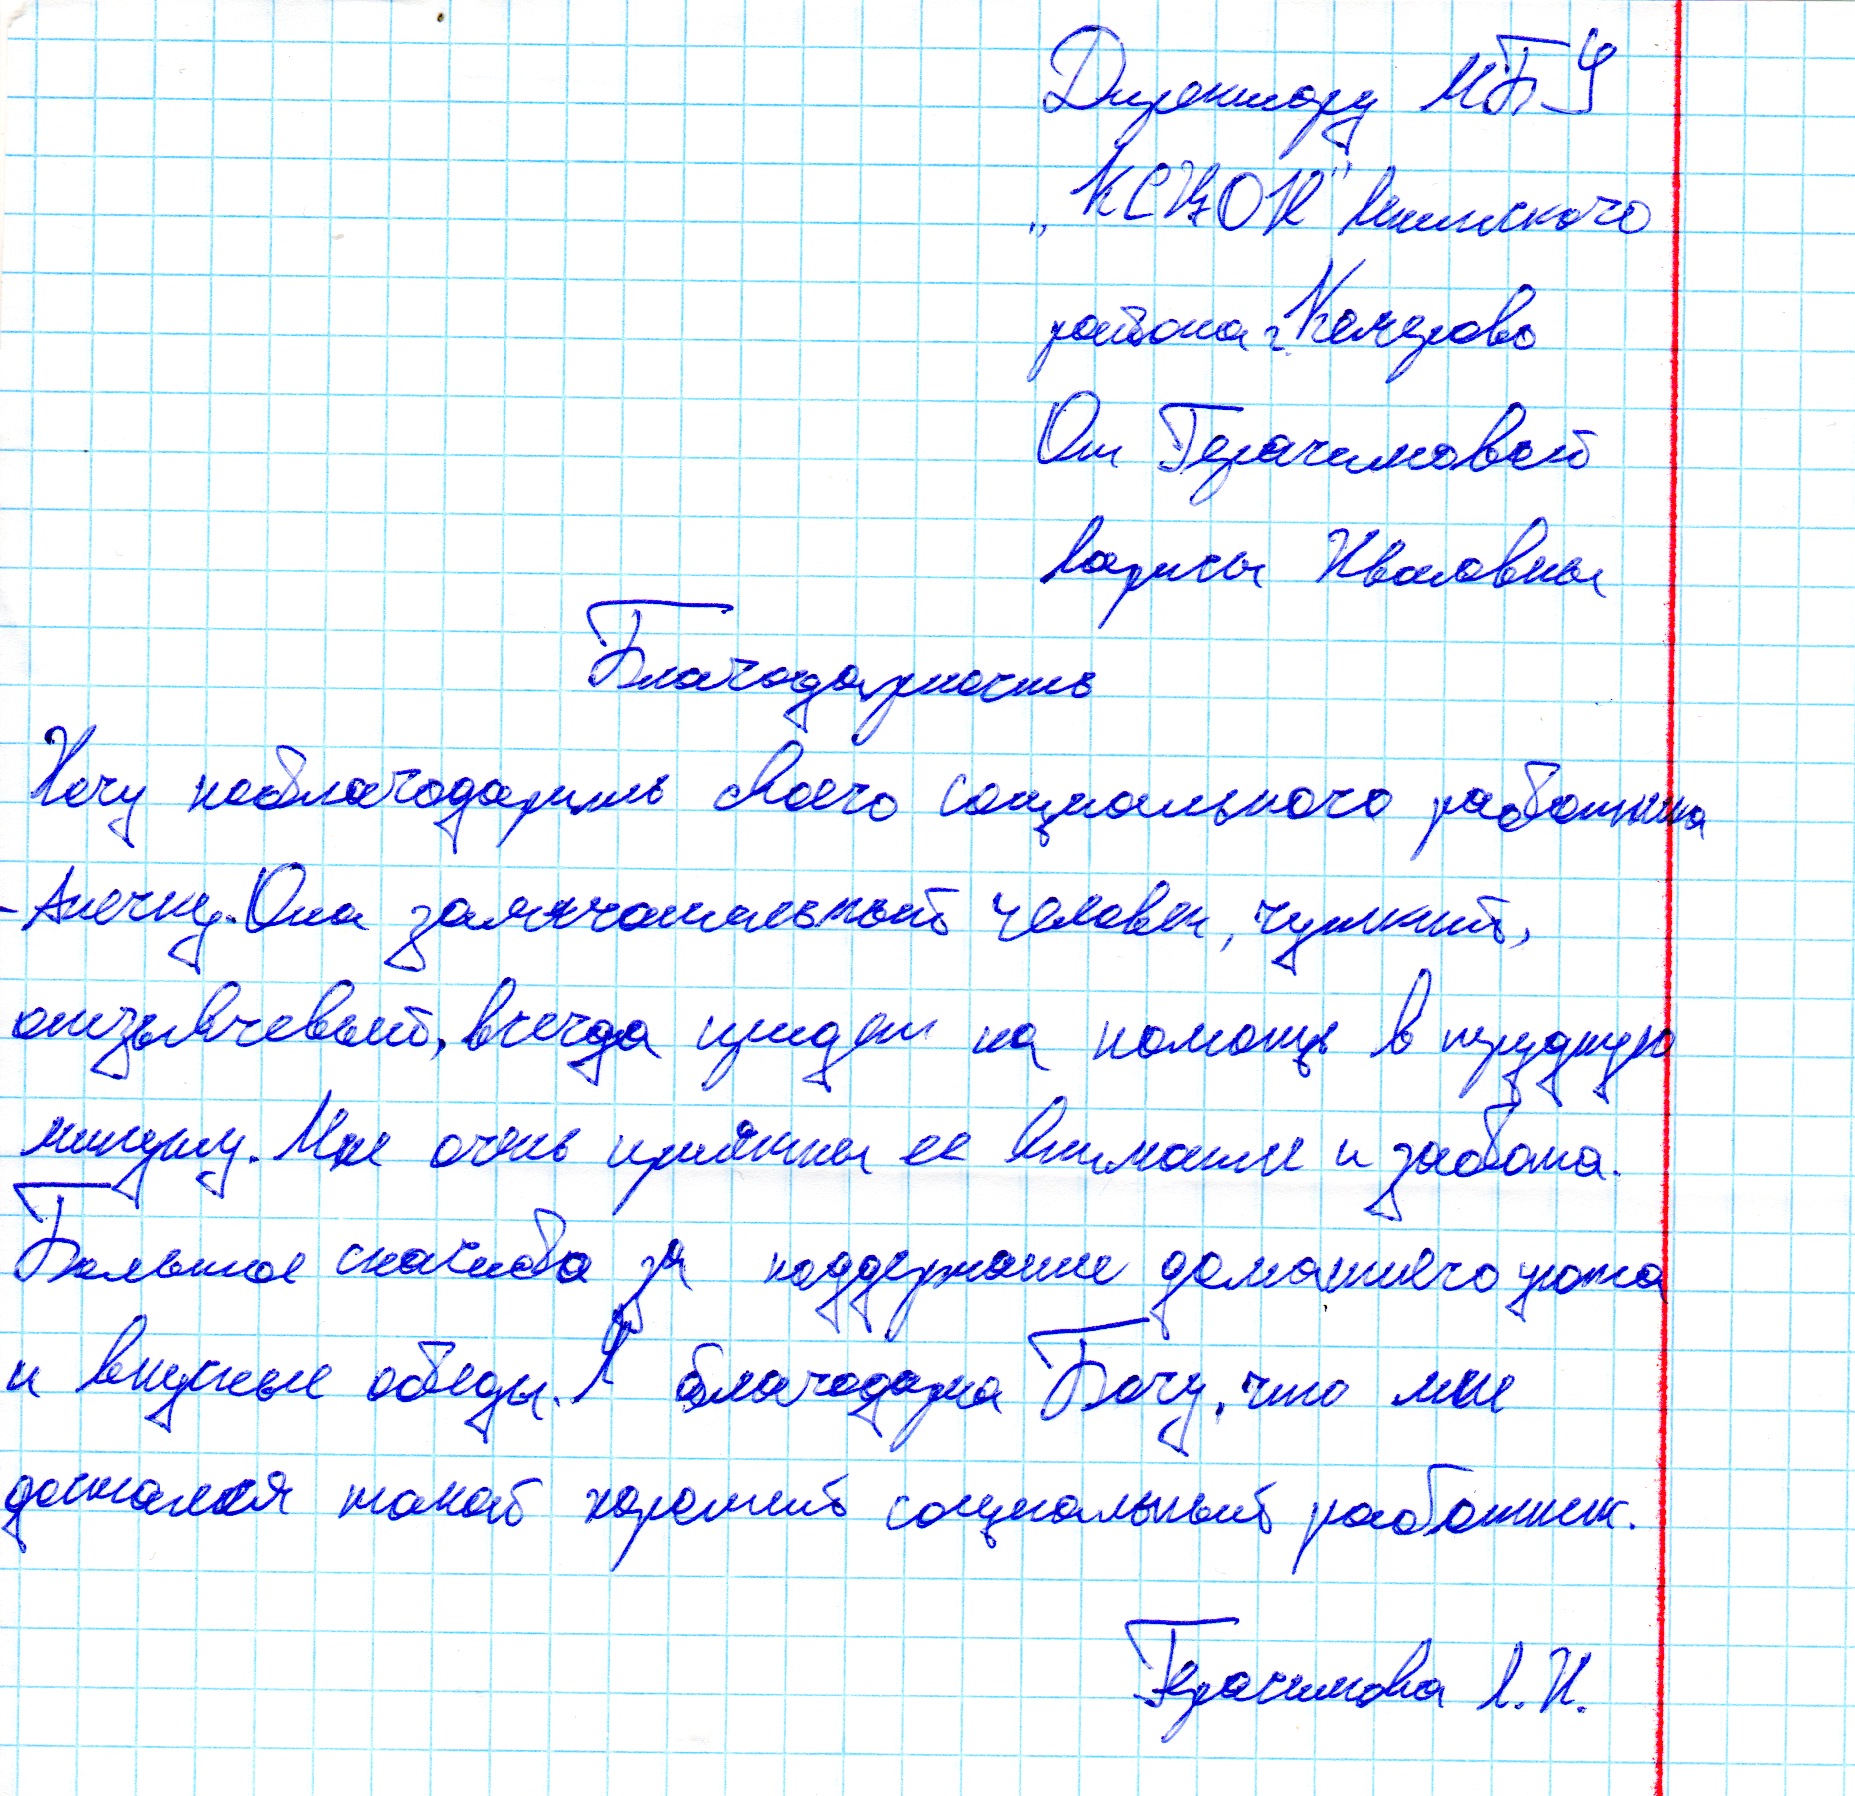 Директору МБУ
„КСЦОН" Ленинского
района г. Кемерово
От Герасимовой
Ларисы Ивановны
Благодарность
Хочу поблагодарить своего социального работника
- Анечку. Она замечательный человек, чуткий,
отзывчевый, всегда придет на помощь в трудную
минуту. Мне очень приятны ее внимание и забота.
Большое спасибо за поддержание домашнего уюта
и вкусные обеды. Я благодарна Богу, что мне
достался такой хороший социальный работник.
Герасимова Л. И.